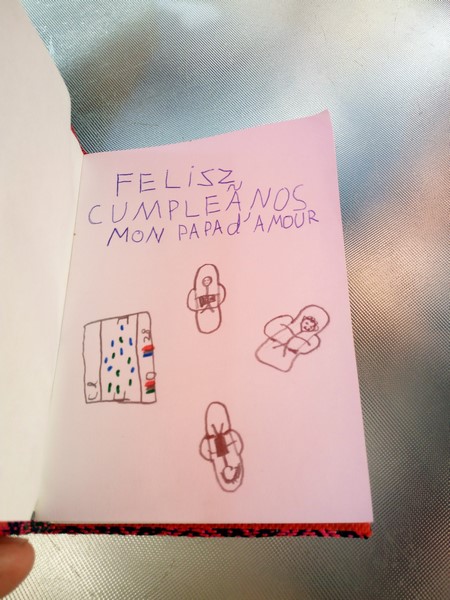 FELiSZ
CUMPLEÃNOS
MON PAPA d'AMOUR